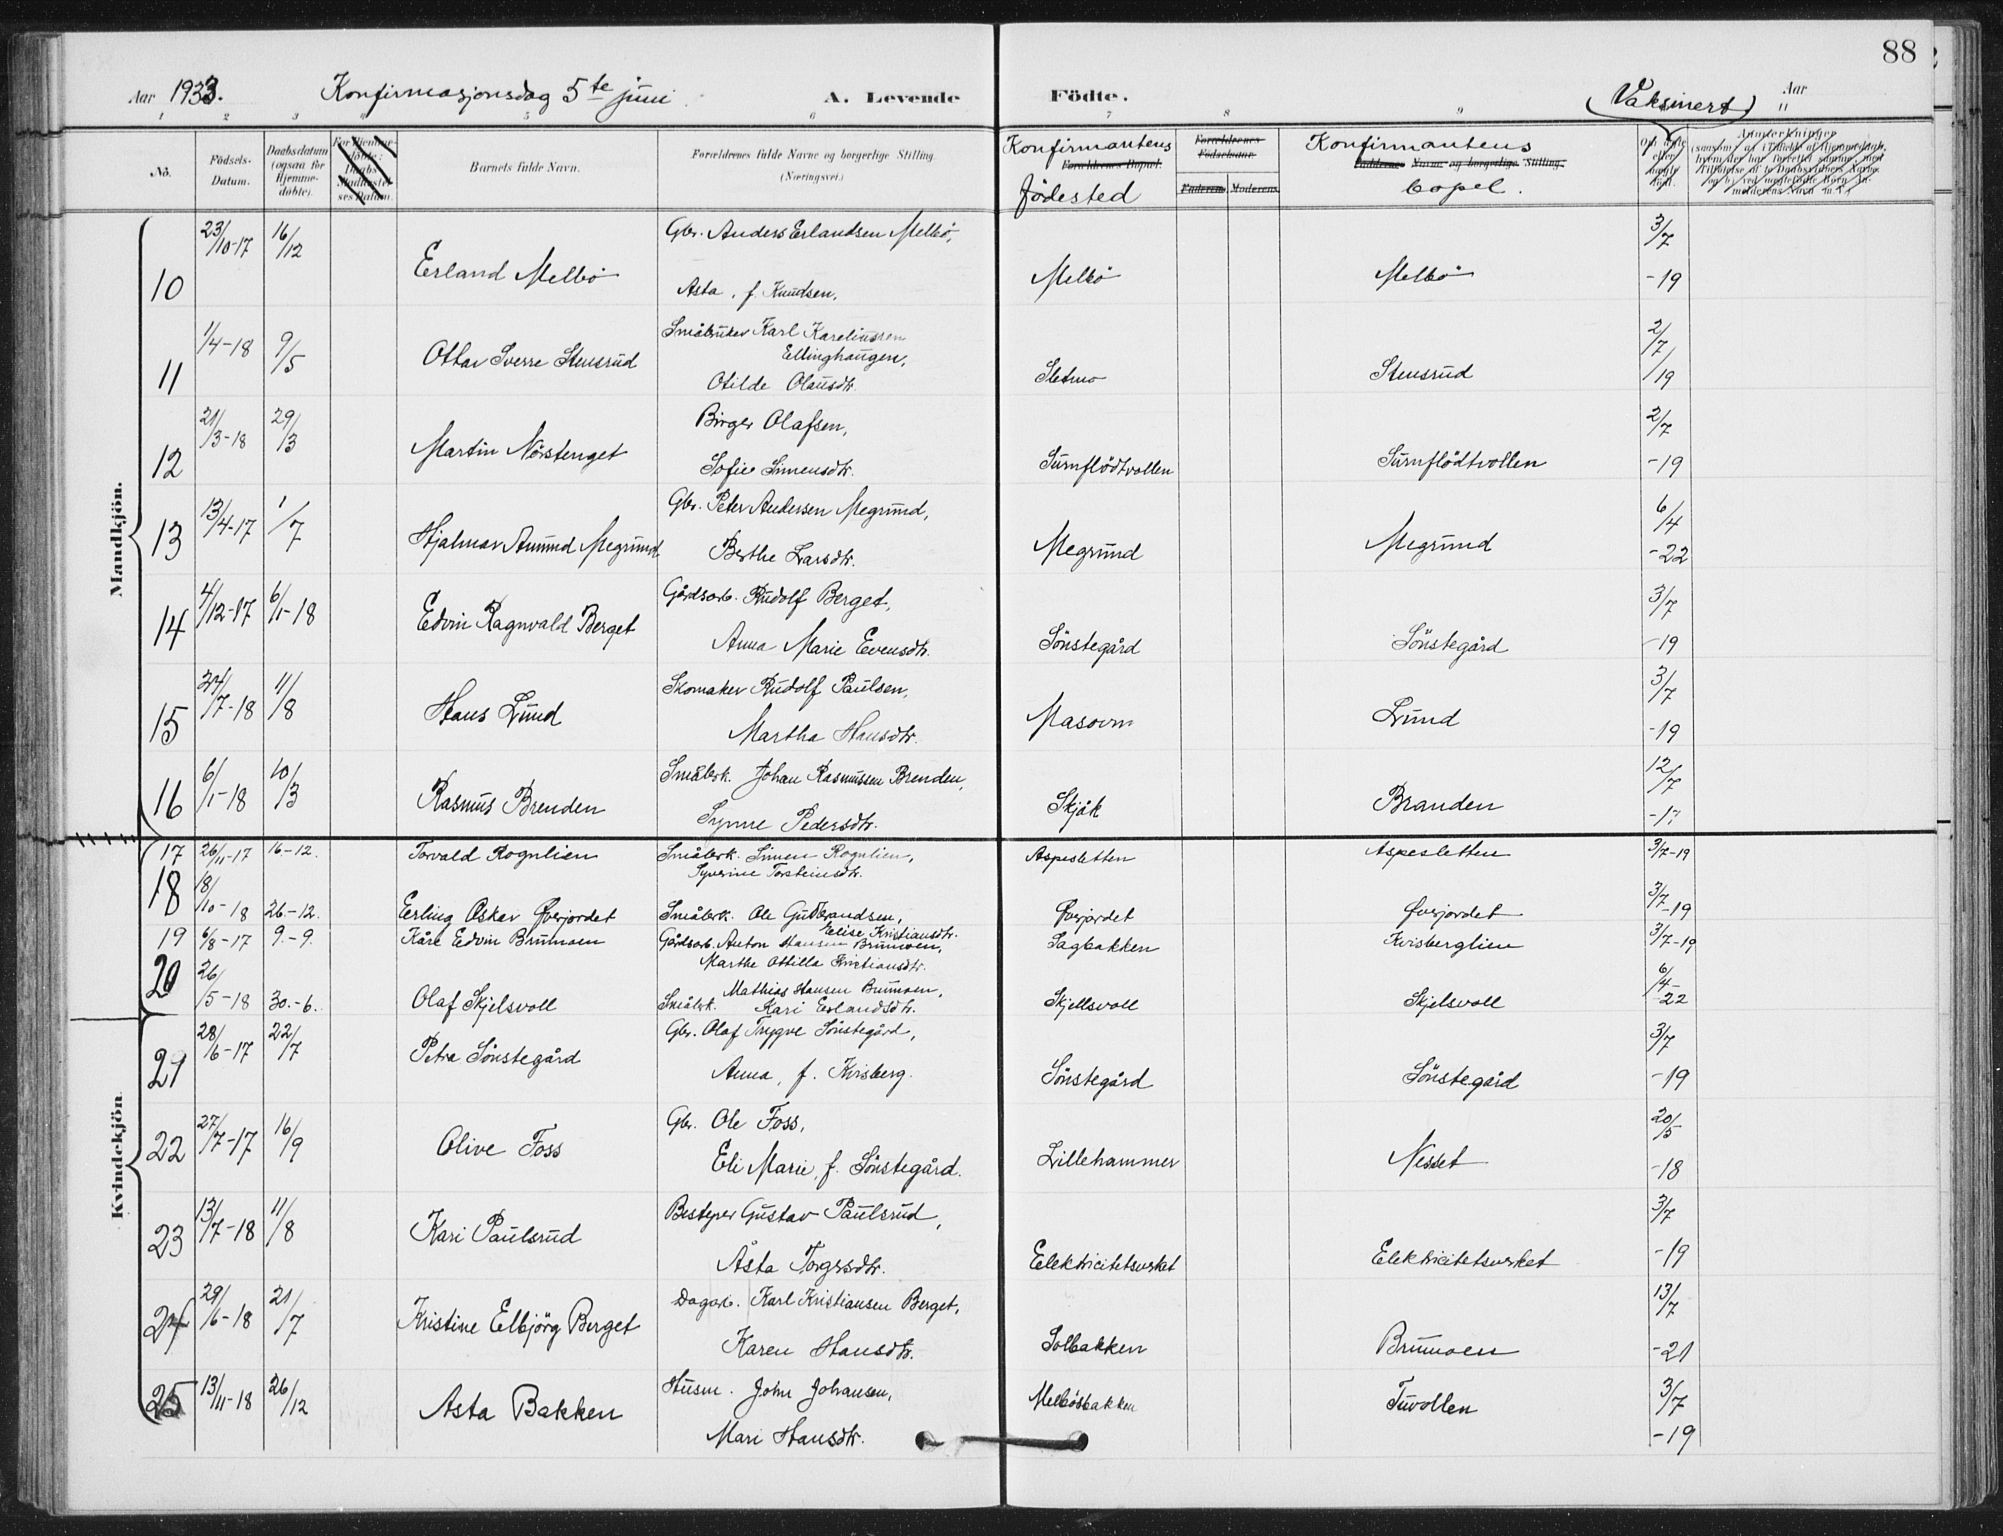 88
Aar 1933. Konfirmasjonsdag 5te juni A. Levende Födte. (Vaksinert) Aar
1 2 3 5 6 7 8 9 11
No. Födsels-Datum. Daabsdatum (ogsaa for Hjemme-döbte). Barnets fulde Navn. Forældrenes fulde Navne og borgerlige Stilling. (Næringsvei.) Konfirmantens födested Konfirmantens bopel.
Forældrenes Bopæl. Forældrenes Födselsaar. Faderens Moderens Faddernes Navne og borgerlige Stilling.
Mandkjön.
10 23/10-17 16/12 Erland Melbö Gbr. Anders Erlandsen Melbö, Melbö Melbö 3/7
Asta, f. Knudsen. -19
11 1/4-18 9/5 Ottar Sverre Stensrud Småbruker Karl Kareliussen Sletmo Stensrud 2/7
Ellinghaugen,
Otilde Olausdtr. /19
12 21/3-18 29/3 Martin Nörstenget Birger Olafsen, Surnflödtvollen Surnflödtvollen 2/7
Sofie Simensdtr. -19
13 13/4-17 1/7 Hjalmar Amund Megrund Gbr. Peter Andersen Megrund, Megrund Megrund 6/4
Berthe Larsdtr. -22
14 4/12-17 6/1-18 Edvin Ragnvald Berget Gårdsarb. Rudolf Berget, Sönstegård Sönstegård 3/7
Anna Marie Evensdtr. -19
15 /7-18 11/8 Hans Lund Skomaker Rudolf Paulsen, Masovn Lund 3/7
Martha Hansdtr. -19
16 6/1-18 10/3 Rasmus Brenden Småbrk. Johan Rasmussen Brenden, Skjåk Branden 12/7
Synne Pedersdtr.
17 26/11-17 16-12. Torvald Rognlien Småbrk. Simen Rognlien, Aspesletten Aspesletten 3/7-19
Syverine Torsteinsdtr.
18 18/10-18 26.-12. Erling Oskar Øverjordet Småbrk. Ole Gudbrandsen, Øverjordet Øverjordet 3/7-19
Elise Kristiansdtr.
19 6/8-17 9.-9. Kåre Edvin Brumoen Gårdsarb. Anton Hansen Brumoen, Sagbakken Kvisberglien 3/7-19
Marthe Ottilia Kristiansdtr.
20 26/5-18 30.-6. Olaf Skjelsvoll Mathias Hansen Brumoen, Skjellsvoll Skjelsvoll 6/4-22
Småbrk. Kari Erlandsdtr.
Kvindekjön.
21 28/6-17 22/7 Petra Sönstegård Gbr. Olaf Trygve Sönstegård, Sönstegård Sönstegård 3/7
Anna, f. Kvisberg. -19
22 27/7-17 16/9 Olive Foss Gbr. Ole Foss, Lillehammer Nesset 20/5
Eli Marie, f. Sönstegård. -18
23 13/7-18 11/8 Kari Paulsrud Bestyrer Gustav Paulsrud, Elektricitetsverket Elektricitetsverket 3/7
Åsta Torgersdtr. -19
24 29/6-18 21/7 Kristine Elbjörg Berget Dagarb. Karl Kristiansen Berget, Solbakken Brumoen 13/7
Karen Hansdtr. -21
25 13/11-18 26/12 Asta Bakken Husm. John Johansen, Melbösbakken Tuvollen 3/7
Mari Hansdtr. -19